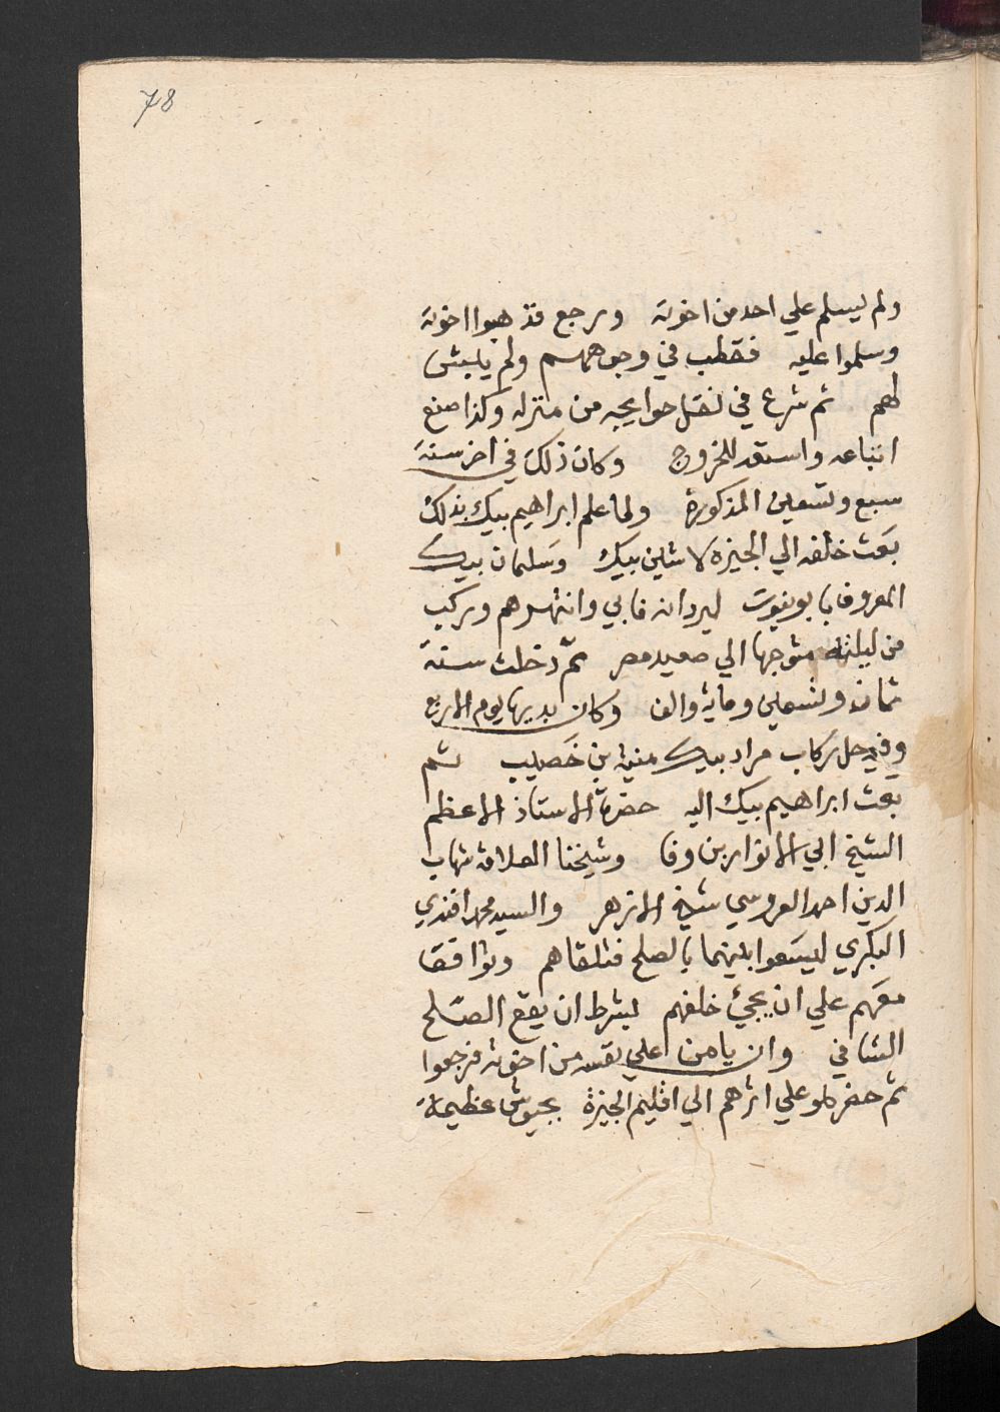 78
ولم يسلم علي احد من اخوته ورجع فذهبوا اخوته
وسلموا عليه فقطب في وجوههم ولم يلبش
لهم ثم شرع في نقل حوايجه من منزله وكذا صنع
اتباعه واستعد للخروج وكان ذلك في اخر سنة
سبع وتسعين المذكورة ولما علم ابراهيم بيك بذلك
بعث خلفه الي الجيزه لاشين بيك وسليمان بيك
المعروف بابو نبوت ليردانه فابي وانتهرهم وركب
من ليلته متوجها الي صعيد مصر ثم دخلت سنة
ثمان وتسعين وماية والف وكان بديها يوم الاربع
وفيه حل ركاب مراد بيك منية بن خصيب ثم
بعث ابراهيم بيك اليه حضرة الاستاذ الاعظم
الشيخ ابي الانوار بن وفا وشيخنا العلامة شهاب
الدين احمد العروسي شيخ الازهر والسيد محمد افندي
البكري ليسعوا بينهما بالصلح فتلقاهم وتوافقا
معهم علي ان يجيء خلفهم بشرط ان يقع الصلح
الشافي وان يامن علي نفسه من اخوته فرجعوا
ثم حضر هو علي اثرهم الي اقليم الجيزة بجيوش عظيمة